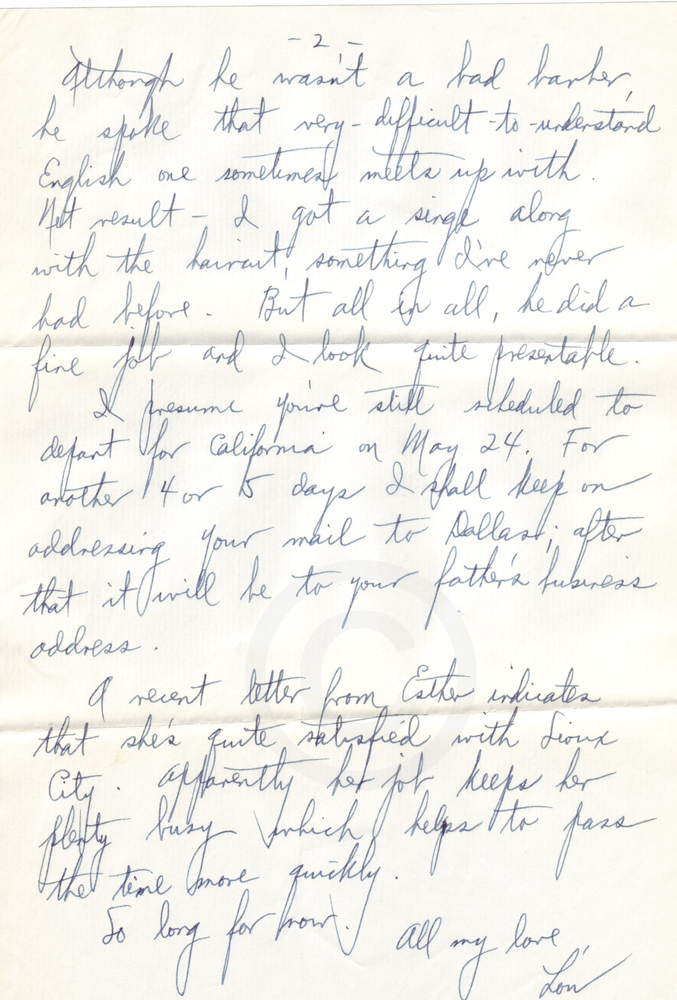 - 2 -
Although he wasn't a bad barber,
he spoke that very-difficult-to-understand
English one sometimes meets up with.
Net result - I got a singe along
with the haircut, something I've never
had before. But all in all, he did a
fine job and I look quite presentable.
I presume you're still scheduled to
depart for California on May 24. For
another 4 or 5 days I shall keep on
addressing your mail to Dallas; after
that it will be to your father's business
address.
A recent letter from Esther indicates
that she's quite satisfied with Sioux
City. Apparently her job keeps her
plenty busy which helps to pass
the time more quickly.
So long for now.
All my love,
Lou